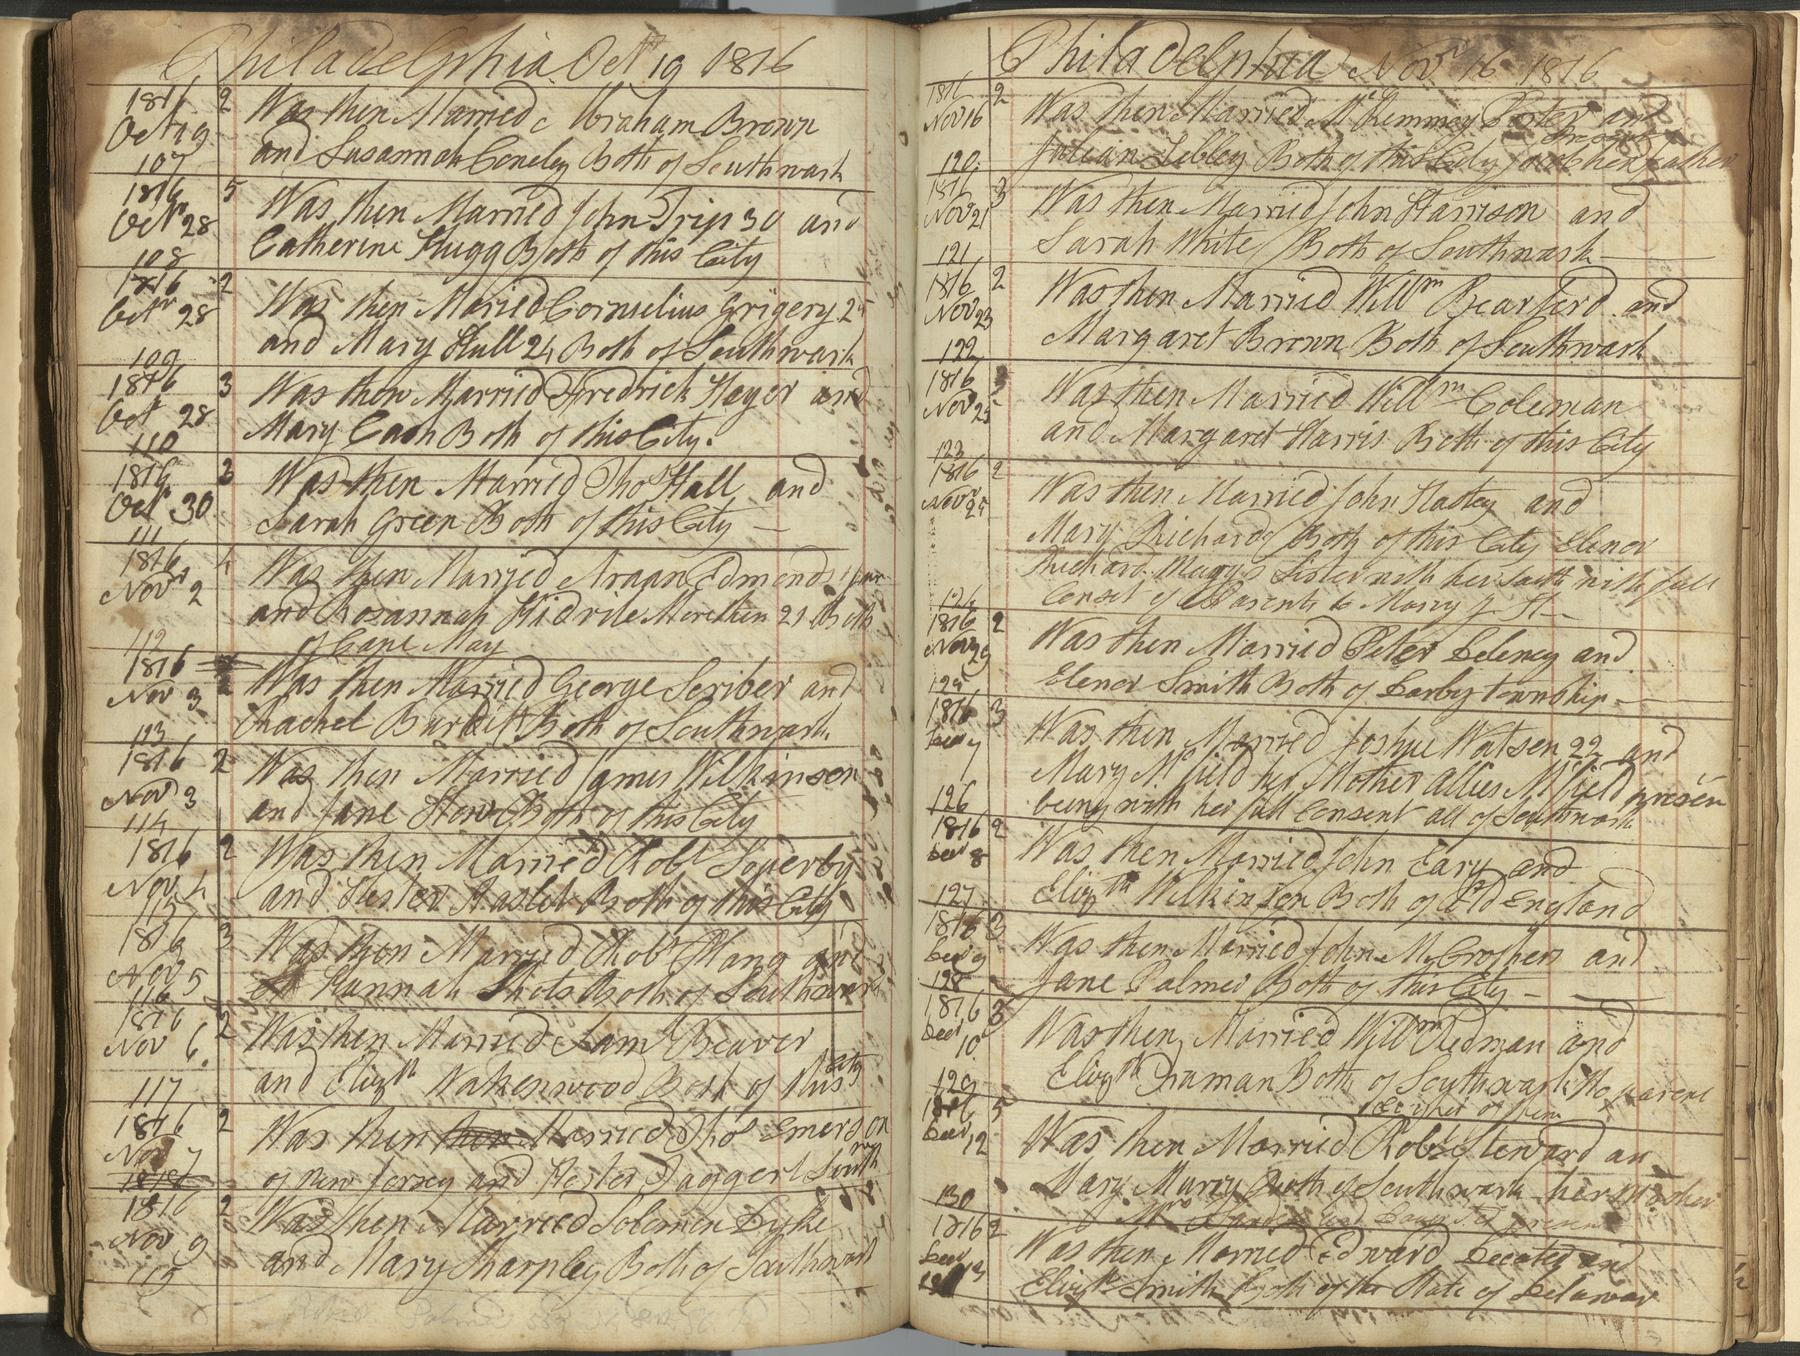 Philadelphia Octr 19 1816
1816 2 Was then Married Abraham Brown
Oct 19 and Susannah Coneley Both of Southwark
107
1816 5 Was then Married John Trip 30 and
Octr 28 Catherine Hugg Both of this City
108
1816 2 Was then Maried Cornelius Grigery
Octr 28 and Mary Hull 24 Both of Southwark
109
1816 3 Was then Married Fredrick Hayer and
Oct 28 Mary Cash Both of this City.
110
1816 3 Was then Married Thos Hall and
Oct 30 Sarah Green Both of this City —
111
1816 4 Was then Married Edmonds
Novr 2 and Rosannah More then 21 Both
112 of Cape May
1816 Was then Married George Scriber and
Nov 3 Rachel Both of Southwark
113
1816 2 Was then Married James Wilkinson
Nov 3 and Jane How Both of this City
114
1816 2 Was then Married Robt Sowerby
Nov 4 and Hester Haslet Both of this City
115
1816 3 Was then Married Robt and
Nov 5 Hannah Shots Both of Southwark
116
1816 2 Was then Married Saml Beaver
Nov 6 and Elizth Wakenwood Both of this City
117
1816 2 Was then then Married Thos Emerson
Nov 7 of New Jersey and Hester Daggert
1818
1816 2 Was then Married Solomon Dyke
Nov 9 and Mary Sharpley Both of Southwark
119
Philadelphia Novr 16 1816
1816 2 Was then Married Porter and
Nov 16 Julean Sibley Both of this City her father
120
1816 3 Was then Married John Harrison and
Nov 21 Sarah White Both of Southwark —
121
1816 2 Was then Married Willm Bearford and
Nov 23 Margaret Brown Both of Southwark
122
1816 Was then Married Willm Coleman
Novr 25 and Margaret Harris Both of this City
123
1816 2 Was then Married John Hatley and
Novr 25 Mary Richards Both of this City Elenor
Richard Marys Sister with her with full
124 Conset of Parents to Marry
1816 2 Was then Married Peter Deleney and
Nov 29 Elenor Smith Both of Darby township —
125
1816 3 Was then Married Joshue Watson 22 and
Decr 7 Mary McField her Mother Allies McField presen
126 being with her full Consent all of Southwark
1816 2 Was then Married John Eary and
Decr 8 Elizth Wilkinson Both of Old England
127
1816 3 Was then Married John McCrosher and
Decr 9 Jane Palmer Both of this City —
128
1816 3 Was then Married Willm Redman and
Decr 10 Elizth Both of Southwark No parent
129 of them
1816 5 Was then Married Robt Steward an
Decr 12 Mary Both of Southwark her Mother
130 present
1816 2 Was then Married Edward and
Decr 13 Elizth Smith Both of the State of Delawar